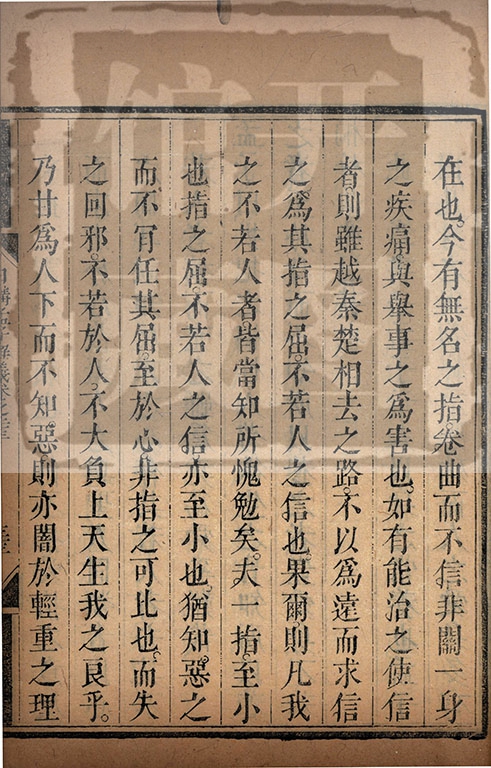 在也今有無名之指卷曲而不信非關一身
之疾痛與舉事之爲害也如有能治之使信
者則雖越秦楚相去之路不以爲遠而求信
之爲其指之屈不若人之信也果爾則凡我
之不若人者皆當知所愧勉矣夫一指至小
也指之屈不若人之信亦至小也猶知惡之
而不肯任其屈至於心非指之可比也而失
之回邪不若於人不大負上天生我之良乎
乃甘爲人下而不知惡則亦闇於輕重之理